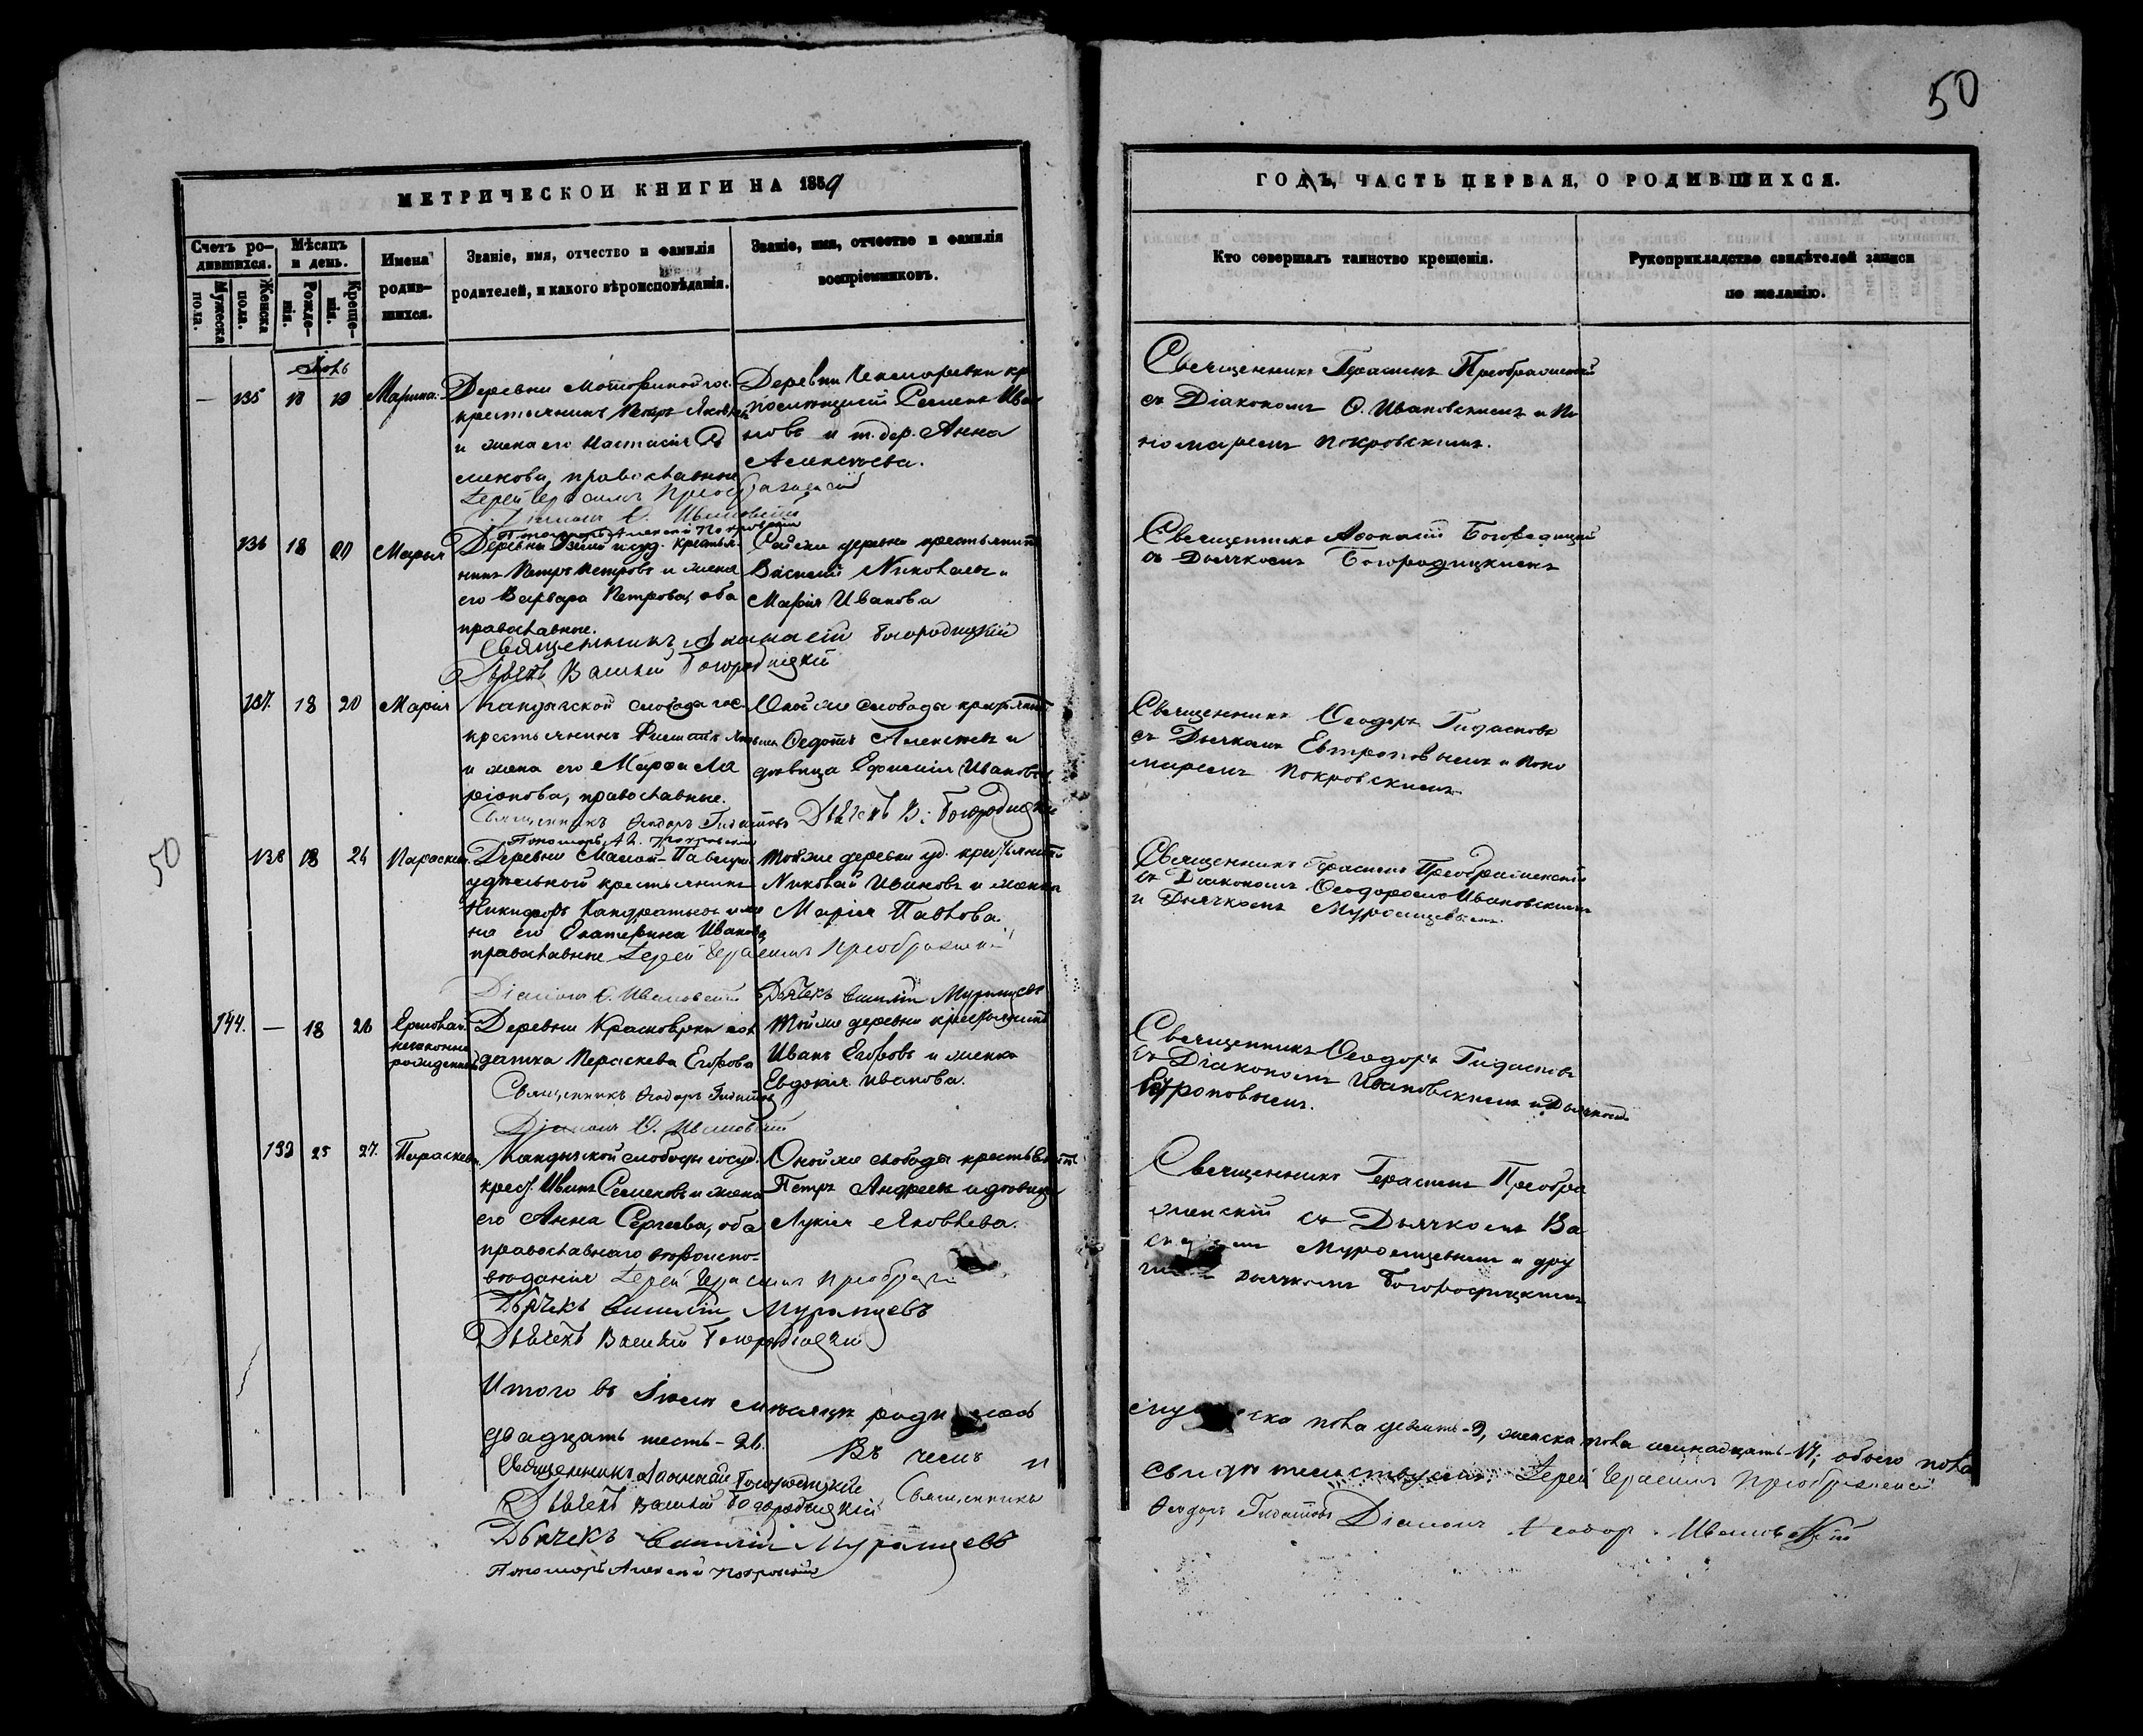 50
МЕТРИЧЕСКОЙ КНИГИ НА 1859
ГОДЪ, ЧАСТЬ ПЕРВАЯ, О РОДИВШИХСЯ.
Счетъ ро-
дившихся.
Мужеска
пола.
Женска
пола.
Мѣсяцъ
и день.
Рожде-
нія.
Креще-
нія.
Имена
родив-
шихся.
Званіе, имя, отчество и фамилія
родителей, и какого вѣроисповѣданія.
Званіе, имя, отчество и фамилія
воспріемниковъ.
Кто совершалъ таинство крещенія.
Рукоприкладство свидѣтелей записи
по желанію.
— 135 18 19 Марина.
Деревни
крестьянинъ Петръ
и жена его Настасія
православные
Іерей Герасимъ Преображенскій
Діаконъ Ѳ. Ивановскій
Пономарь Алексей Покровскій
Деревни
Семенъ Ива
новъ и т. дер. Анна
Алексѣева.
Священникъ Герасимъ Преображенскій
съ Діакономъ Ѳ. Ивановскимъ и По
номаремъ Покровскимъ.
136 18 20 Марья
Деревни
нинъ Петръ Петровъ и жена
его Варвара Петрова, оба
православные.
Священникъ Афанасій Богородицкій
Дьячекъ Василій Богородицкій
деревни крестьянинъ
Василій Николаевъ и
Марія Иванова
Священникъ Афонасій Богородицкій
съ Дьячкомъ Богородицкимъ
137. 18 20 Марія
Кандызской слобода гос.
крестьянинъ
и жена его Марфа Ла
ріонова, православные.
Священникъ Ѳеодоръ Гидасповъ
Пономарь Ал. Покровскій
Оной же слободы крестьянинъ
Ѳедотъ Алексѣевъ и
дѣвица Ефимія Иванова
Дьячекъ В: Богородицкій
Священникъ Ѳеодоръ Гидасповъ
съ Дьячкомъ Евтроповымъ и Поно
маремъ Покровскимъ
50
138 18 24 Параскев.
Деревни Малой-Павлушк.
удѣльной крестьянинъ
Никифоръ Кандратьевъ и же
на его Екатерина Иванова,
православные Іерей Герасимъ Преображенскій
Діаконъ Ѳ. Ивановскій Дьячекъ Василій Муромцевъ
Тойже деревни уд. крестьянинъ
Николай Ивановъ и женка
Марія Павлова.
Священникъ Герасимъ Преображенскій
съ Діакономъ Ѳеодоромъ Ивановскимъ
и Дьячкомъ Муромцевымъ.
144. — 18 26 Ермолай.
незаконно
рожденный
Деревни Красноярки сол
датка Пераскева Егорова
Священникъ Ѳеодоръ Гидасповъ
Діаконъ Ѳ. Ивановскій
Той же деревни крестьянинъ
Иванъ Егоровъ и женка
Евдокія Иванова.
Священникъ Ѳеодоръ Гидасповъ
съ Діакономъ Ивановскимъ и Дьячкомъ
Евтроповымъ.
139 25 27. Параскева.
Кандызской слободы госуд.
крест. Иванъ Семеновъ и жена
его Анна Сергеева, оба
православнаго вѣроиспо-
вѣданія Іерей Герасимъ Преображ
Дьячекъ Василій Муромцевъ
Дьячекъ Василій Богородицкій
Оной же слободы крестьянинъ
Петръ Андреевъ и дѣвица
Лукія Яковлева.
Священникъ Герасимъ Преобра
женскій съ Дьячкомъ Ва
Муромцевымъ и дру
Дьячкомъ Богородицкимъ
Итого въ мѣсяцѣ родилось
мужеска пола девять-9, женска пола семнадцать-17; обоего пола
двадцать шесть-26. Въ чемъ и
свидѣтельствуемъ: Іерей Герасимъ Преображенскій
Священникъ Афанасій Богородицкій Священникъ
Ѳеодоръ Гидасповъ Діаконъ Ѳеодоръ Ивановскій
Дьячекъ Василій Богородицкій
Дьячекъ Василій Муромцевъ
Пономарь Алексей Покровскій